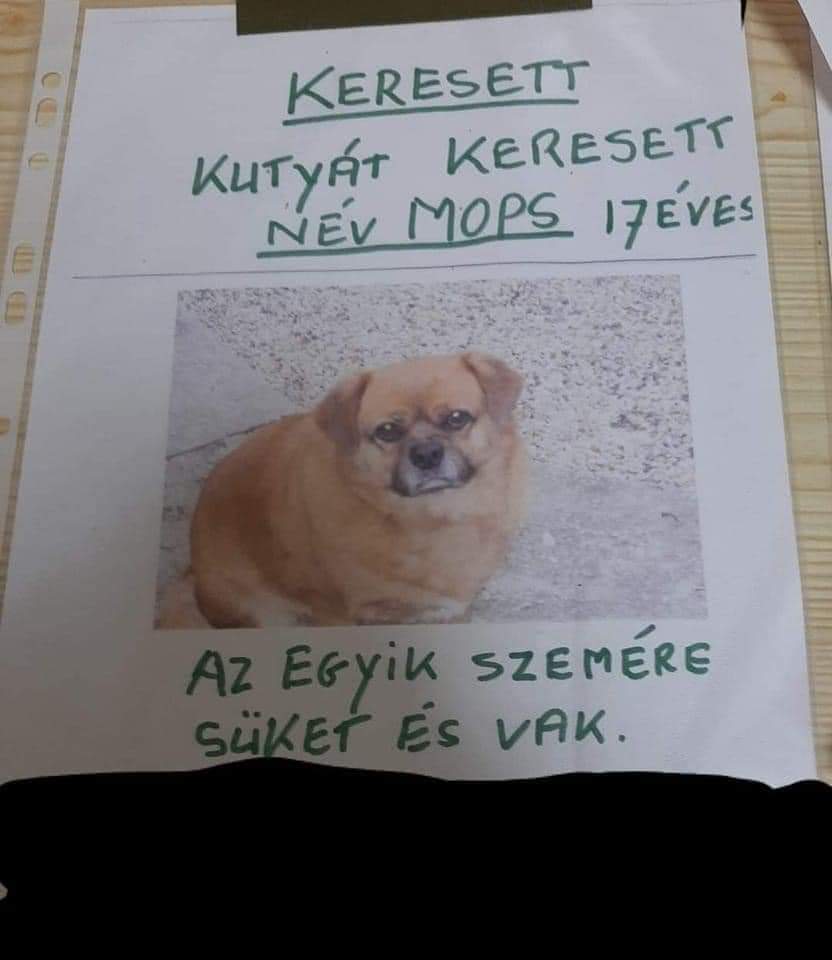 KERESETT
KUTYÁT KERESETT
NÉV MOPS 17ÉVES
AZ EGYIK SZEMÉRE
SÜKET ÉS VAK.